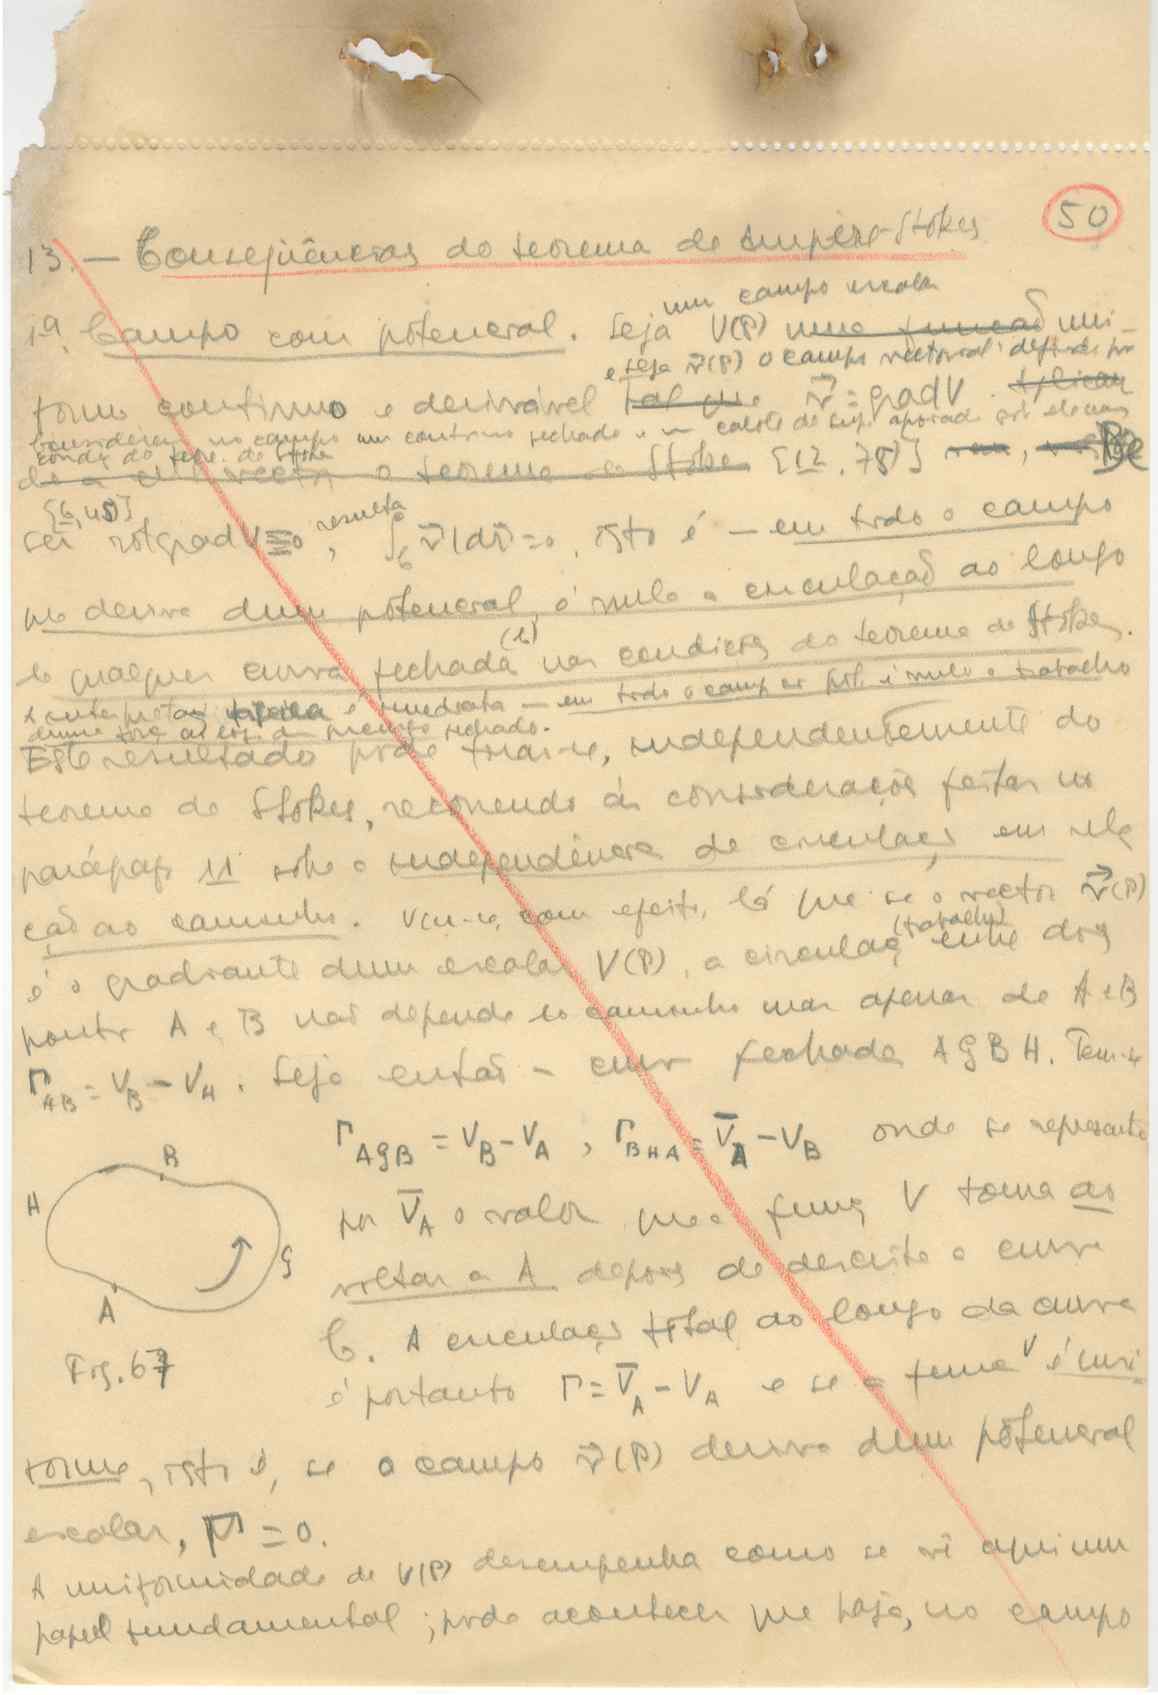 50
13. — Consequências do teorema de Ampère-Stokes
um campo escalar
1ª. Campo com potencial. Seja V(P) uma função uni-
e seja v⃗(P) o campo vectorial definido por
forme contínuo e derivável tal que v⃗ = grad V.
considerem no campo um contorno fechado e calote de sup. apoiada
cond. do teor. de Stokes
o teorema de Stokes [12, 78] De
[6, 45] resulta
ser rot grad V ≡ 0, ∫ v⃗ | dr⃗ = 0, isto é — em todo o campo
que deriva dum potencial, é nula a circulação ao longo
de qualquer curva fechada (1) nas condições do teorema de Stokes.
A interpretação física é imediata — em todo o campo é nulo o trabalho
fechado.
Este resultado pode tirar-se, independentemente do
teorema de Stokes, recorrendo às considerações feitas no
parágrafo 11 sobre a independência da circulação em rela
ção ao caminho. Viu-se, com efeito, lá que se o vector v⃗(P)
é o gradiante dum escalar V(P), a circulação (trabalho) entre dois
pontos A e B não depende do caminho mas apenas de A e B
Γ_AB = V_B − V_A. Seja então a curva fechada A G B H. Tem-se
Γ_AGB = V_B − V_A , Γ_BHA = V̄_A − V_B onde se representa
por V̄_A o valor que a função V toma ao
voltar a A depois de descrita a curva
C. A circulação total ao longo da curva
é portanto Γ = V̄_A − V_A e se a função V é uni-
B
H
G
A
Fig. 67
forme, isto é, se o campo v⃗(P) deriva dum potencial
escalar, Γ = 0.
A uniformidade de V(P) desempenha como se vê aqui um
papel fundamental; pode acontecer que haja, no campo